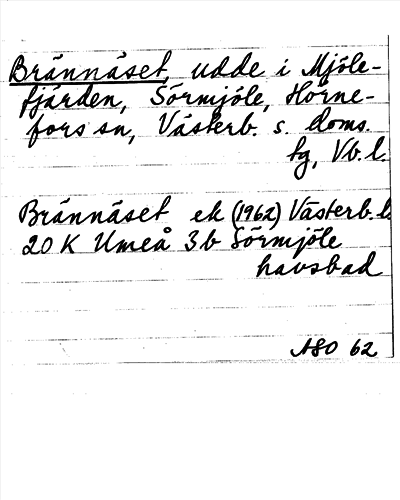 Brännäset, udde i Mjöle-
fjärden, Sörmjöle, Hörne-
fors sn, Västerb. s. doms.
tg, Vb. l.
Brännäset ek (1962) Västerb. l.
20 K Umeå 3b Sörmjöle
havsbad
ASO 62